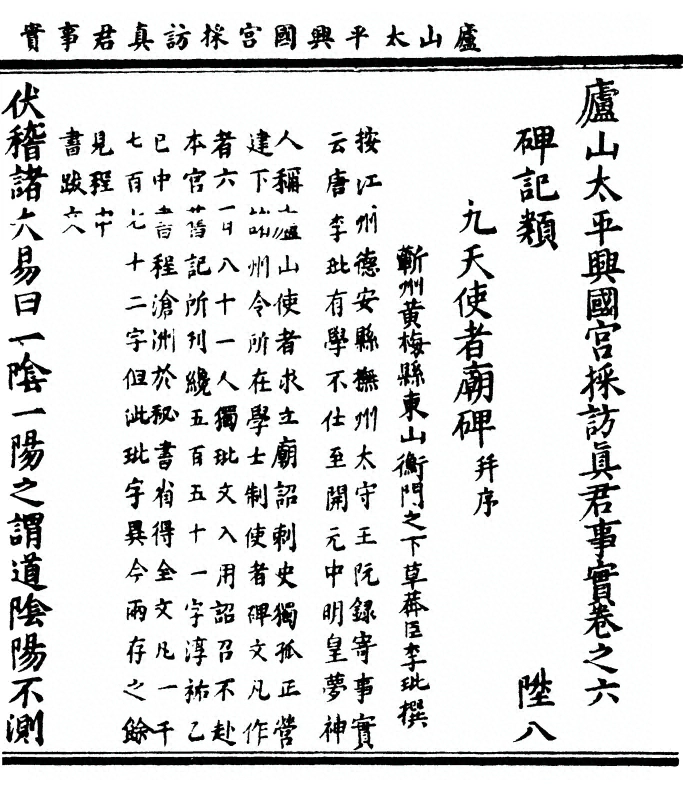 廬山太平興國宮採訪真君事實
廬山太平興國宮採訪眞君事實卷之六
碑記類　陞八
九天使者廟碑 并序
蘄州黃梅縣東山衡門之下草莽臣李玭撰
按江州德安縣撫州太守王阮錄寄事實
云唐李玭有學不仕至開元中明皇夢神
人稱廬山使者求立廟詔刺史獨孤正營
建下諸州令所在學士制使者碑文凡作
者六百八十一人獨玭文入用詔召不赴
本宮舊記所刊纔五百五十一字淳祐乙
巳中書程滄洲於秘書省得全文凡一千
七百七十二字但泚玭字異今兩存之餘
見程中
書跋文
伏稽諸大易曰一陰一陽之謂道陰陽不測